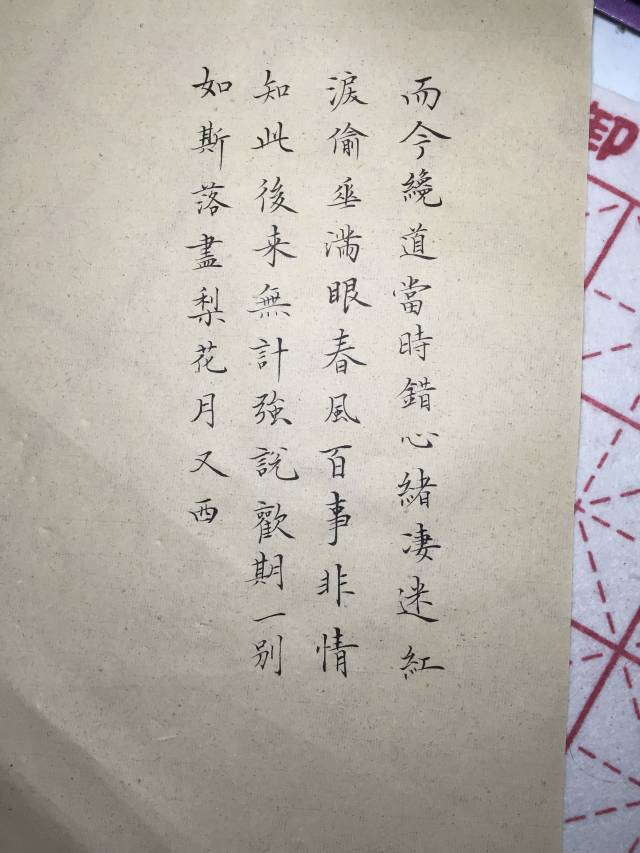 而今纔道當時錯心緒淒迷紅
淚偷垂満眼春風百事非情
知此後来無計強説歡期一别
如斯落盡梨花月又西
御